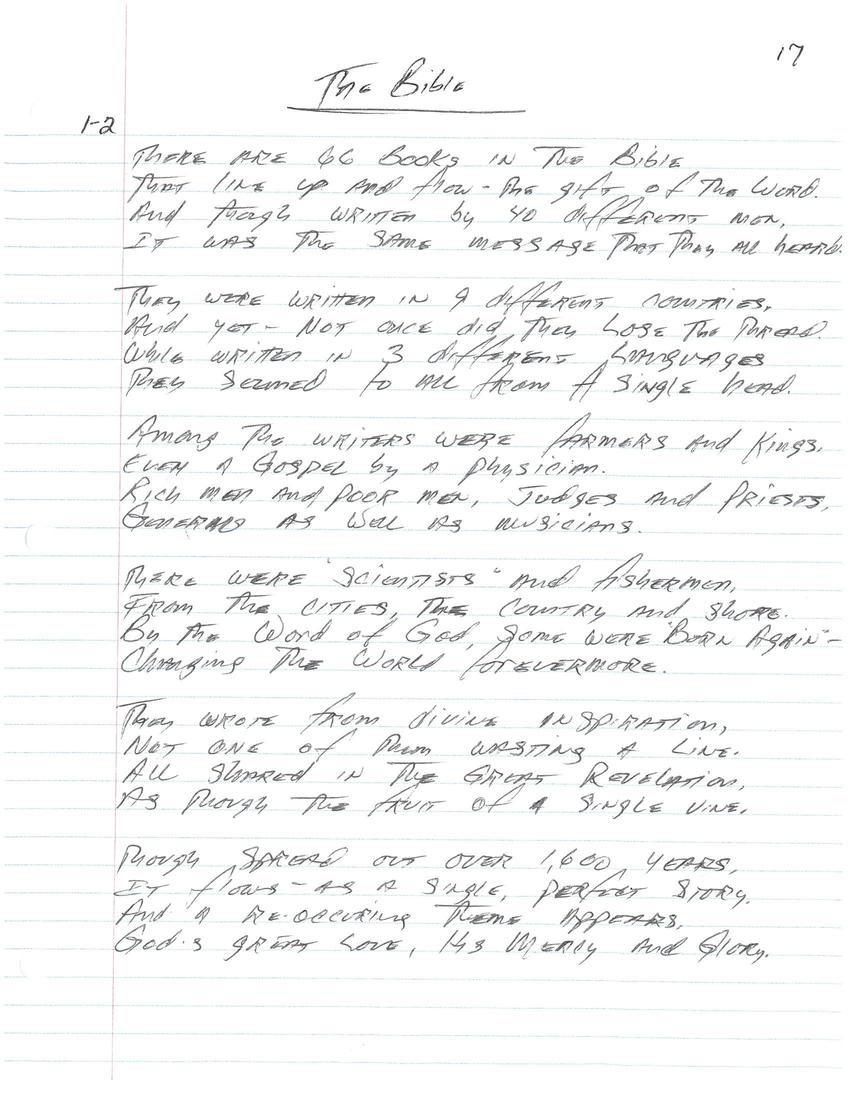 17
The Bible
1-2
There are 66 Books in The Bible
That line up and flow - the gift of the Word.
And though written by 40 different men,
It was the same message that they all heard.
They were written in 9 different countries,
And yet - not once did they lose the thread.
While written in 3 different languages
They seemed to all from A single head.
Among the writers were farmers and kings,
Even a Gospel by a physician.
Rich men and poor men, Judges and Priests,
Generals as well as musicians.
There were "Scientists" and fishermen,
From the cities, the country and shore.
By the Word of God, some were "Born Again" -
Changing the World forevermore.
They wrote from divine inspiration,
Not one of them wasting a line.
All shared in the Great Revelation,
As though the fruit of a single vine.
Though spread out over 1,600 years,
It flows - as a single, perfect story.
And a re-occuring theme appears,
God's great Love, His Mercy and Glory.